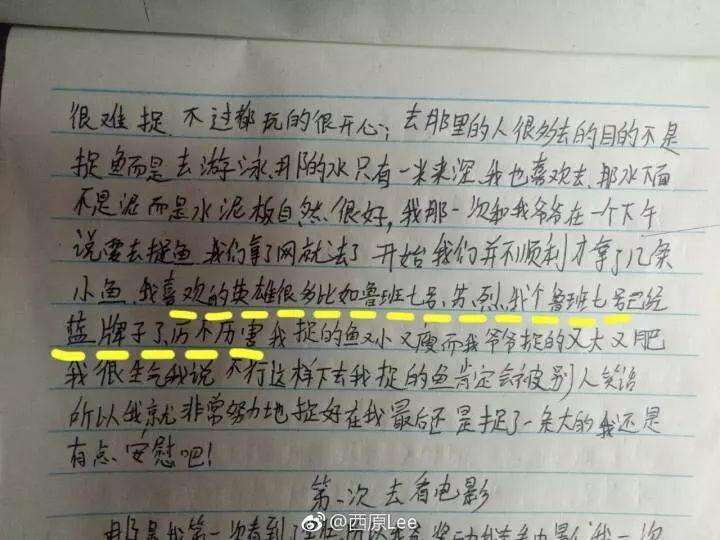 很难捉，不过都玩的很开心；去那里的人很多去的目的不是
捉鱼而是去游泳，那的水只有一米来深，我也喜欢去，那水下面
不是泥而是水泥板自然很好，我那一次和我爷爷在一个下午
说要去捉鱼，我们拿了网就去了，开始我们并不顺利才拿了几条
小鱼，我喜欢的英雄很多比如鲁班七号、苏、烈、我个鲁班七号已经
蓝牌子了、厉不厉害我捉的鱼又小又瘦而我爷爷捉的又大又肥
我很生气我说，不行这样下去我捉的鱼肯定会被别人笑话
所以我就非常努力地捉好在我最后还是捉了一条大的我还是
有点安慰吧！
第一次去看电影
那是我第一次看到
@西原Lee